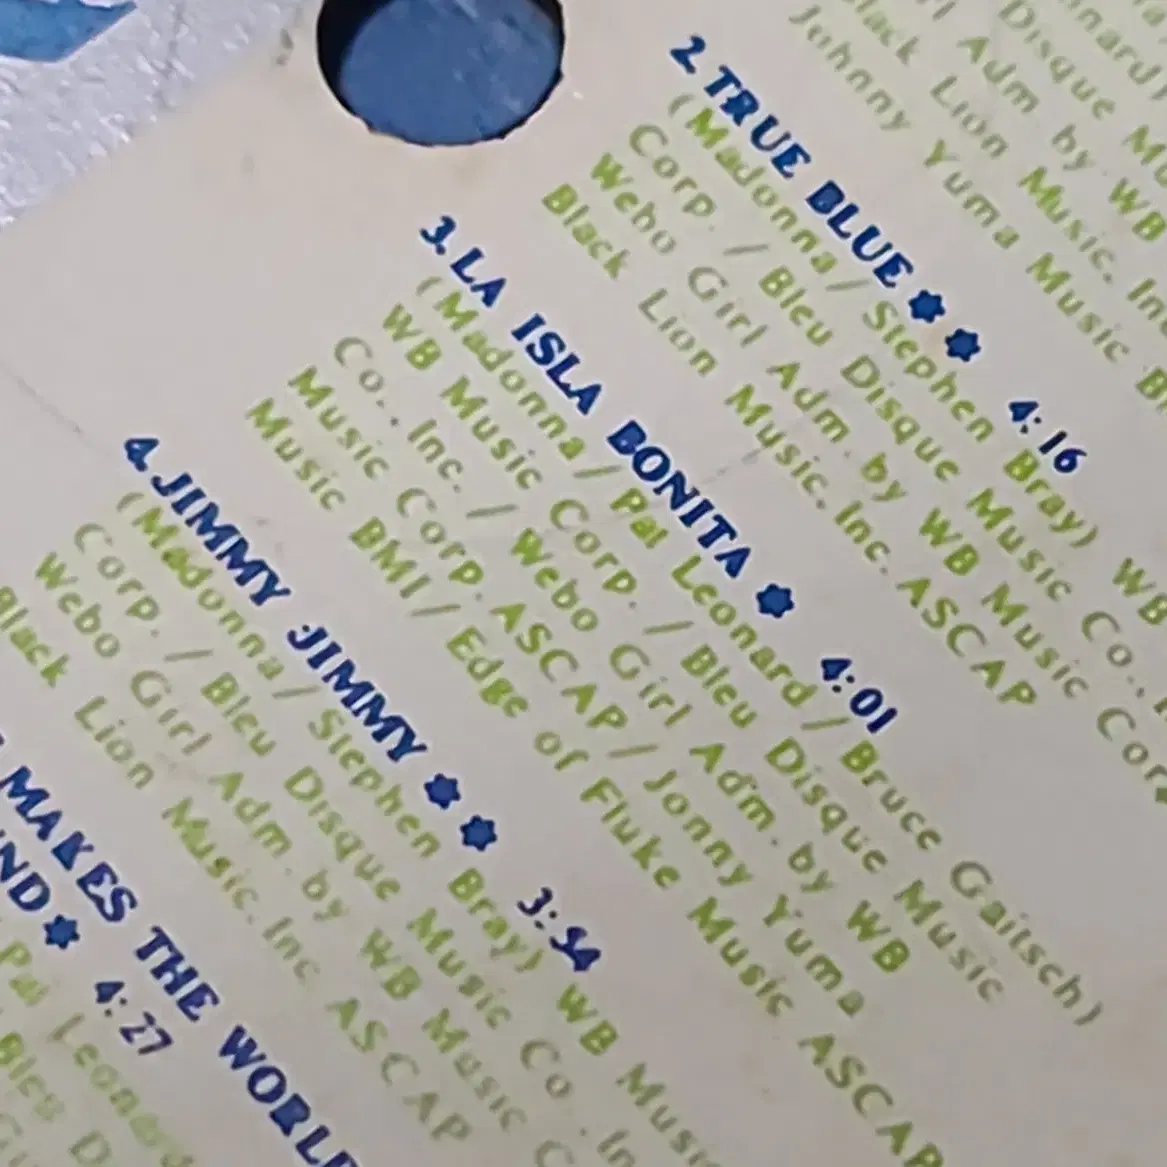 Disque Mu
Adm by WB
Black Lion Music, Inc
Johnny Yuma Music B
2. TRUE BLUE ✱ ✱ 4:16
(Madonna / Stephen Bray) WB
Corp. / Bleu Disque Music Co.,
Webo Girl Adm. by WB Music Corp
Black Lion Music, Inc. ASCAP
3. LA ISLA BONITA ✱ 4:01
(Madonna / Pat Leonard / Bruce Gaitsch)
WB Music Corp. / Bleu Disque Music
Co., Inc. / Webo Girl Adm. by WB
Music Corp. ASCAP / Jonny Yuma
Music BMI / Edge of Fluke Music ASCAP
4. JIMMY JIMMY ✱ ✱ 3:54
(Madonna / Stephen Bray) WB Music
Corp. / Bleu Disque Music Co., In
Webo Girl Adm. by WB Music C
Black Lion Music, Inc ASCAP
MAKES THE WORLD
ND ✱ 4:27
Pat Leonard
Bleu D